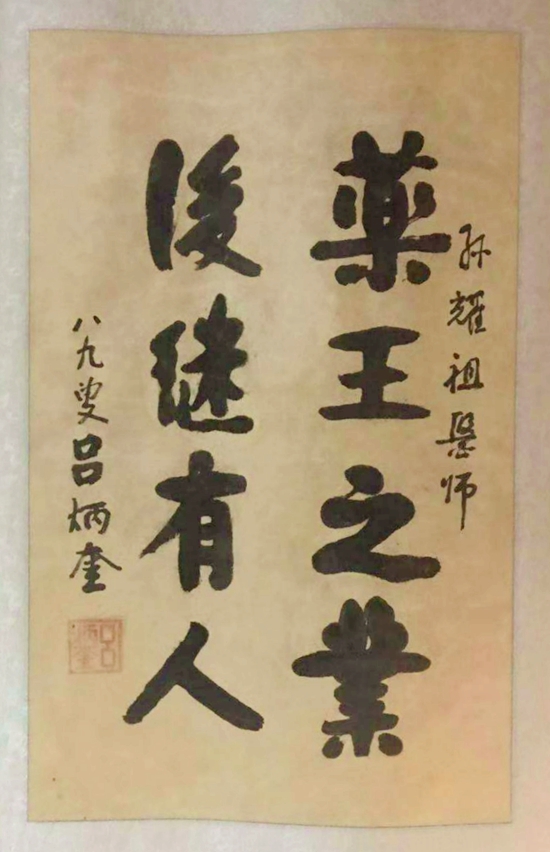 孙耀祖医师
药王之業
後继有人
八九叟吕炳奎
吕炳奎